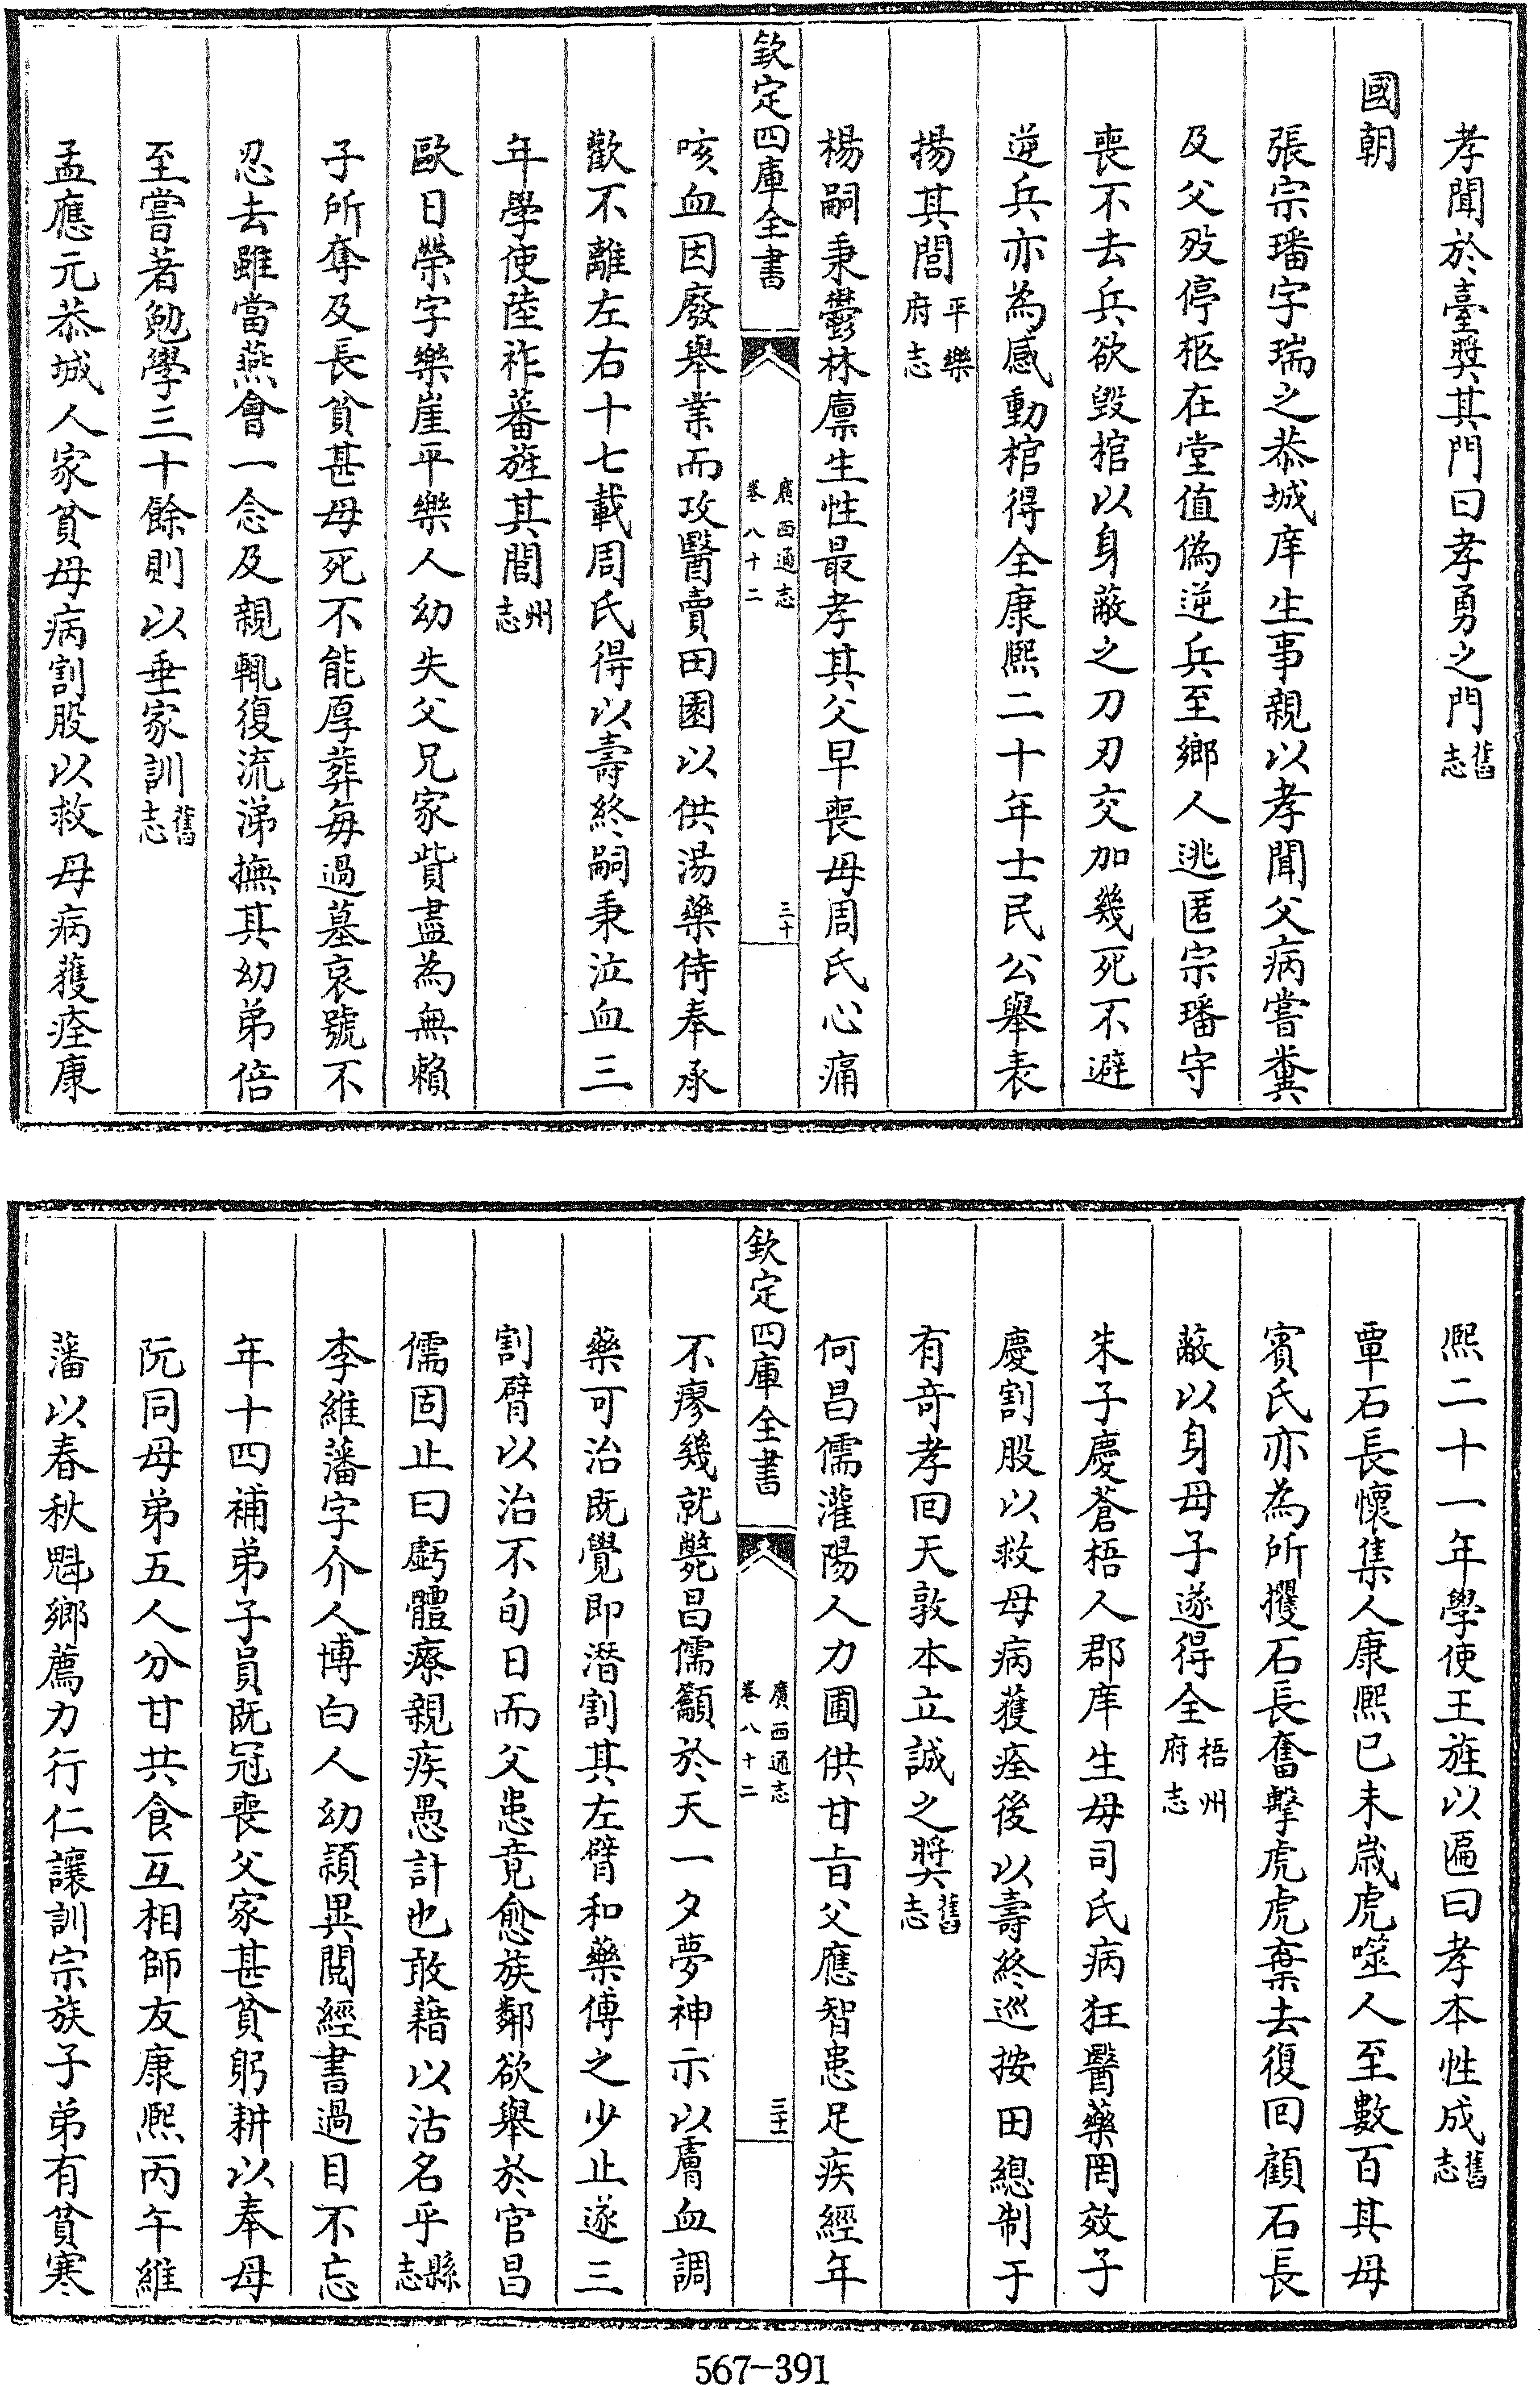 孝聞於臺奬其門曰孝勇之門舊志
國朝
張宗璠字瑞之恭城庠生事親以孝聞父病嘗糞
及父歿停柩在堂值偽逆兵至鄉人逃匿宗璠守
喪不去兵欲毀棺以身蔽之刀刃交加幾死不避
逆兵亦為感動棺得全康熙二十年士民公舉表
揚其閭平樂府志
楊嗣秉鬱林廪生性最孝其父早喪母周氏心痛
欽定四庫全書
廣西通志
卷八十二
三十
咳血因廢舉業而攻醫賣田園以供湯藥侍奉承
歡不離左右十七載周氏得以壽終嗣秉泣血三
年學使陸祚蕃旌其閭州志
歐日榮字樂崖平樂人幼失父兄家貲盡為無賴
子所奪及長貧甚母死不能厚葬每過墓哀號不
忍去雖當燕會一念及親輒復流涕撫其幼弟倍
至嘗著勉學三十餘則以垂家訓舊志
孟應元恭城人家貧母病割股以救母病獲痊康
熙二十一年學使王旌以匾曰孝本性成舊志
覃石長懷集人康熙已未嵗虎噬人至數百其母
賓氏亦為所攫石長奮擊虎虎棄去復回顧石長
蔽以身母子遂得全梧州府志
朱子慶蒼梧人郡庠生母司氏病狂醫藥罔效子
慶割股以救母病獲痊後以壽終巡按田總制于
有奇孝回天敦本立誠之奬舊志
何昌儒灌陽人力圃供甘旨父應智患足疾經年
欽定四庫全書
廣西通志
卷八十二
三十一
不瘳幾就斃昌儒籲於天一夕夢神示以膚血調
藥可治既覺即潛割其左臂和藥傅之少止遂三
割臂以治不旬日而父患竟愈族鄰欲舉於官昌
儒固止曰虧體療親疾愚計也敢藉以沽名乎縣志
李維藩字介人博白人幼頴異閱經書過目不忘
年十四補弟子員既冠喪父家甚貧躬耕以奉母
阮同母弟五人分甘共食互相師友康熙丙午維
藩以春秋魁鄉薦力行仁讓訓宗族子弟有貧寒
567-391